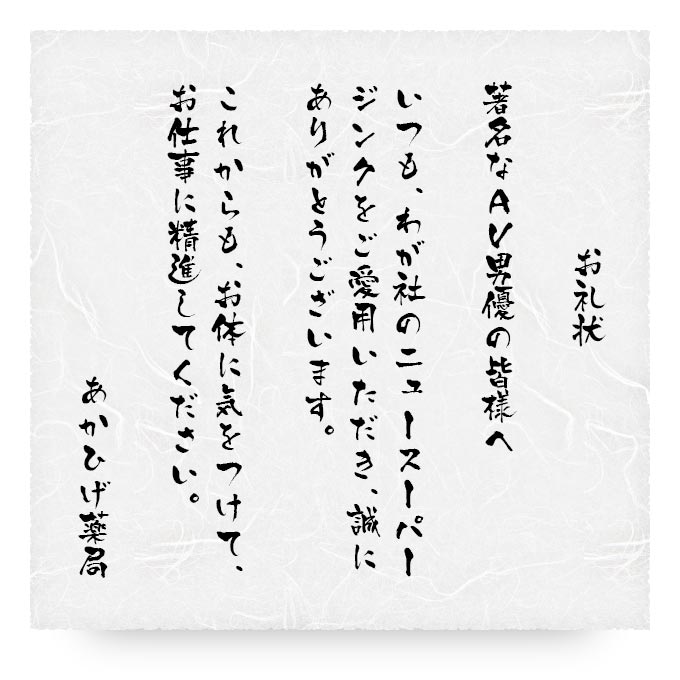 お礼状
著名なAV男優の皆様へ
いつも、わが社のニュースーパー
ジンクをご愛用いただき、誠に
ありがとうございます。
これからも、お体に気をつけて、
お仕事に精進してください。
あかひげ薬局